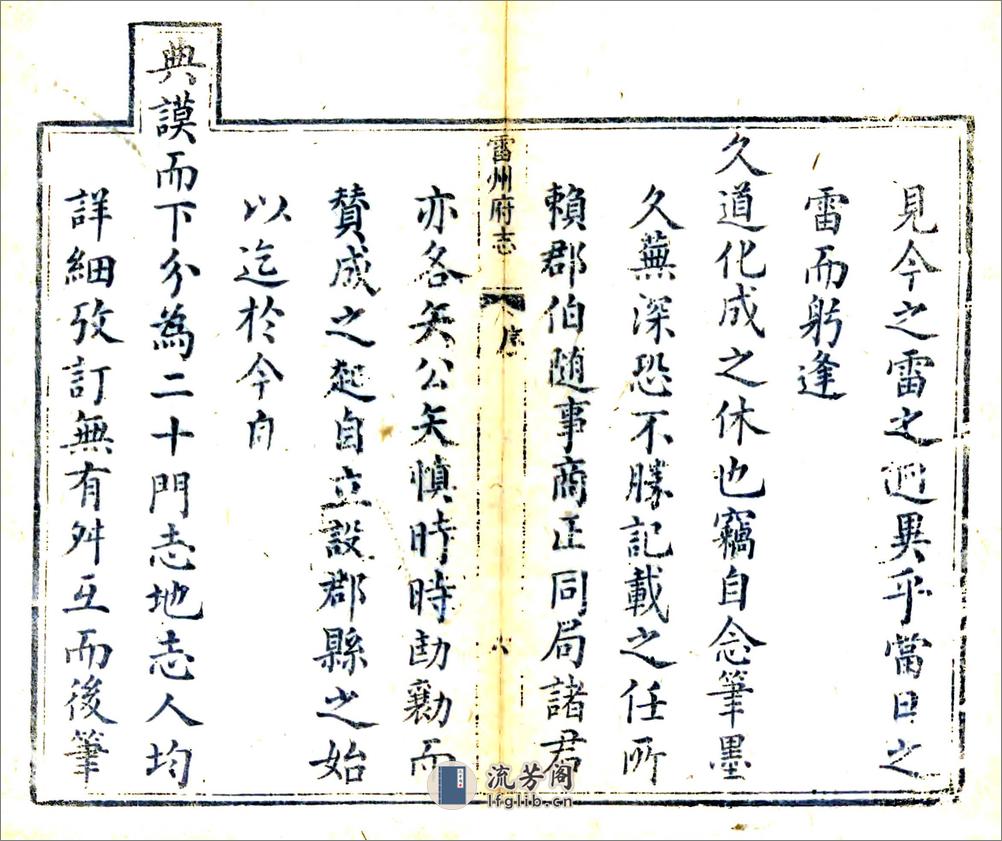 見今之雷之迥異乎當日之
雷而躬逢
久道化成之休也竊自念筆墨
久蕪深恐不勝記載之任所
賴郡伯随事商正同局諸君
雷州府志
序
六
亦各矢公矢慎時時劻勷而
賛成之起自立設郡縣之始
以迄於今自
典謨而下分為二十門志地志人均
詳細攷訂無有舛互而後筆
流芳阁
lfglib.cn